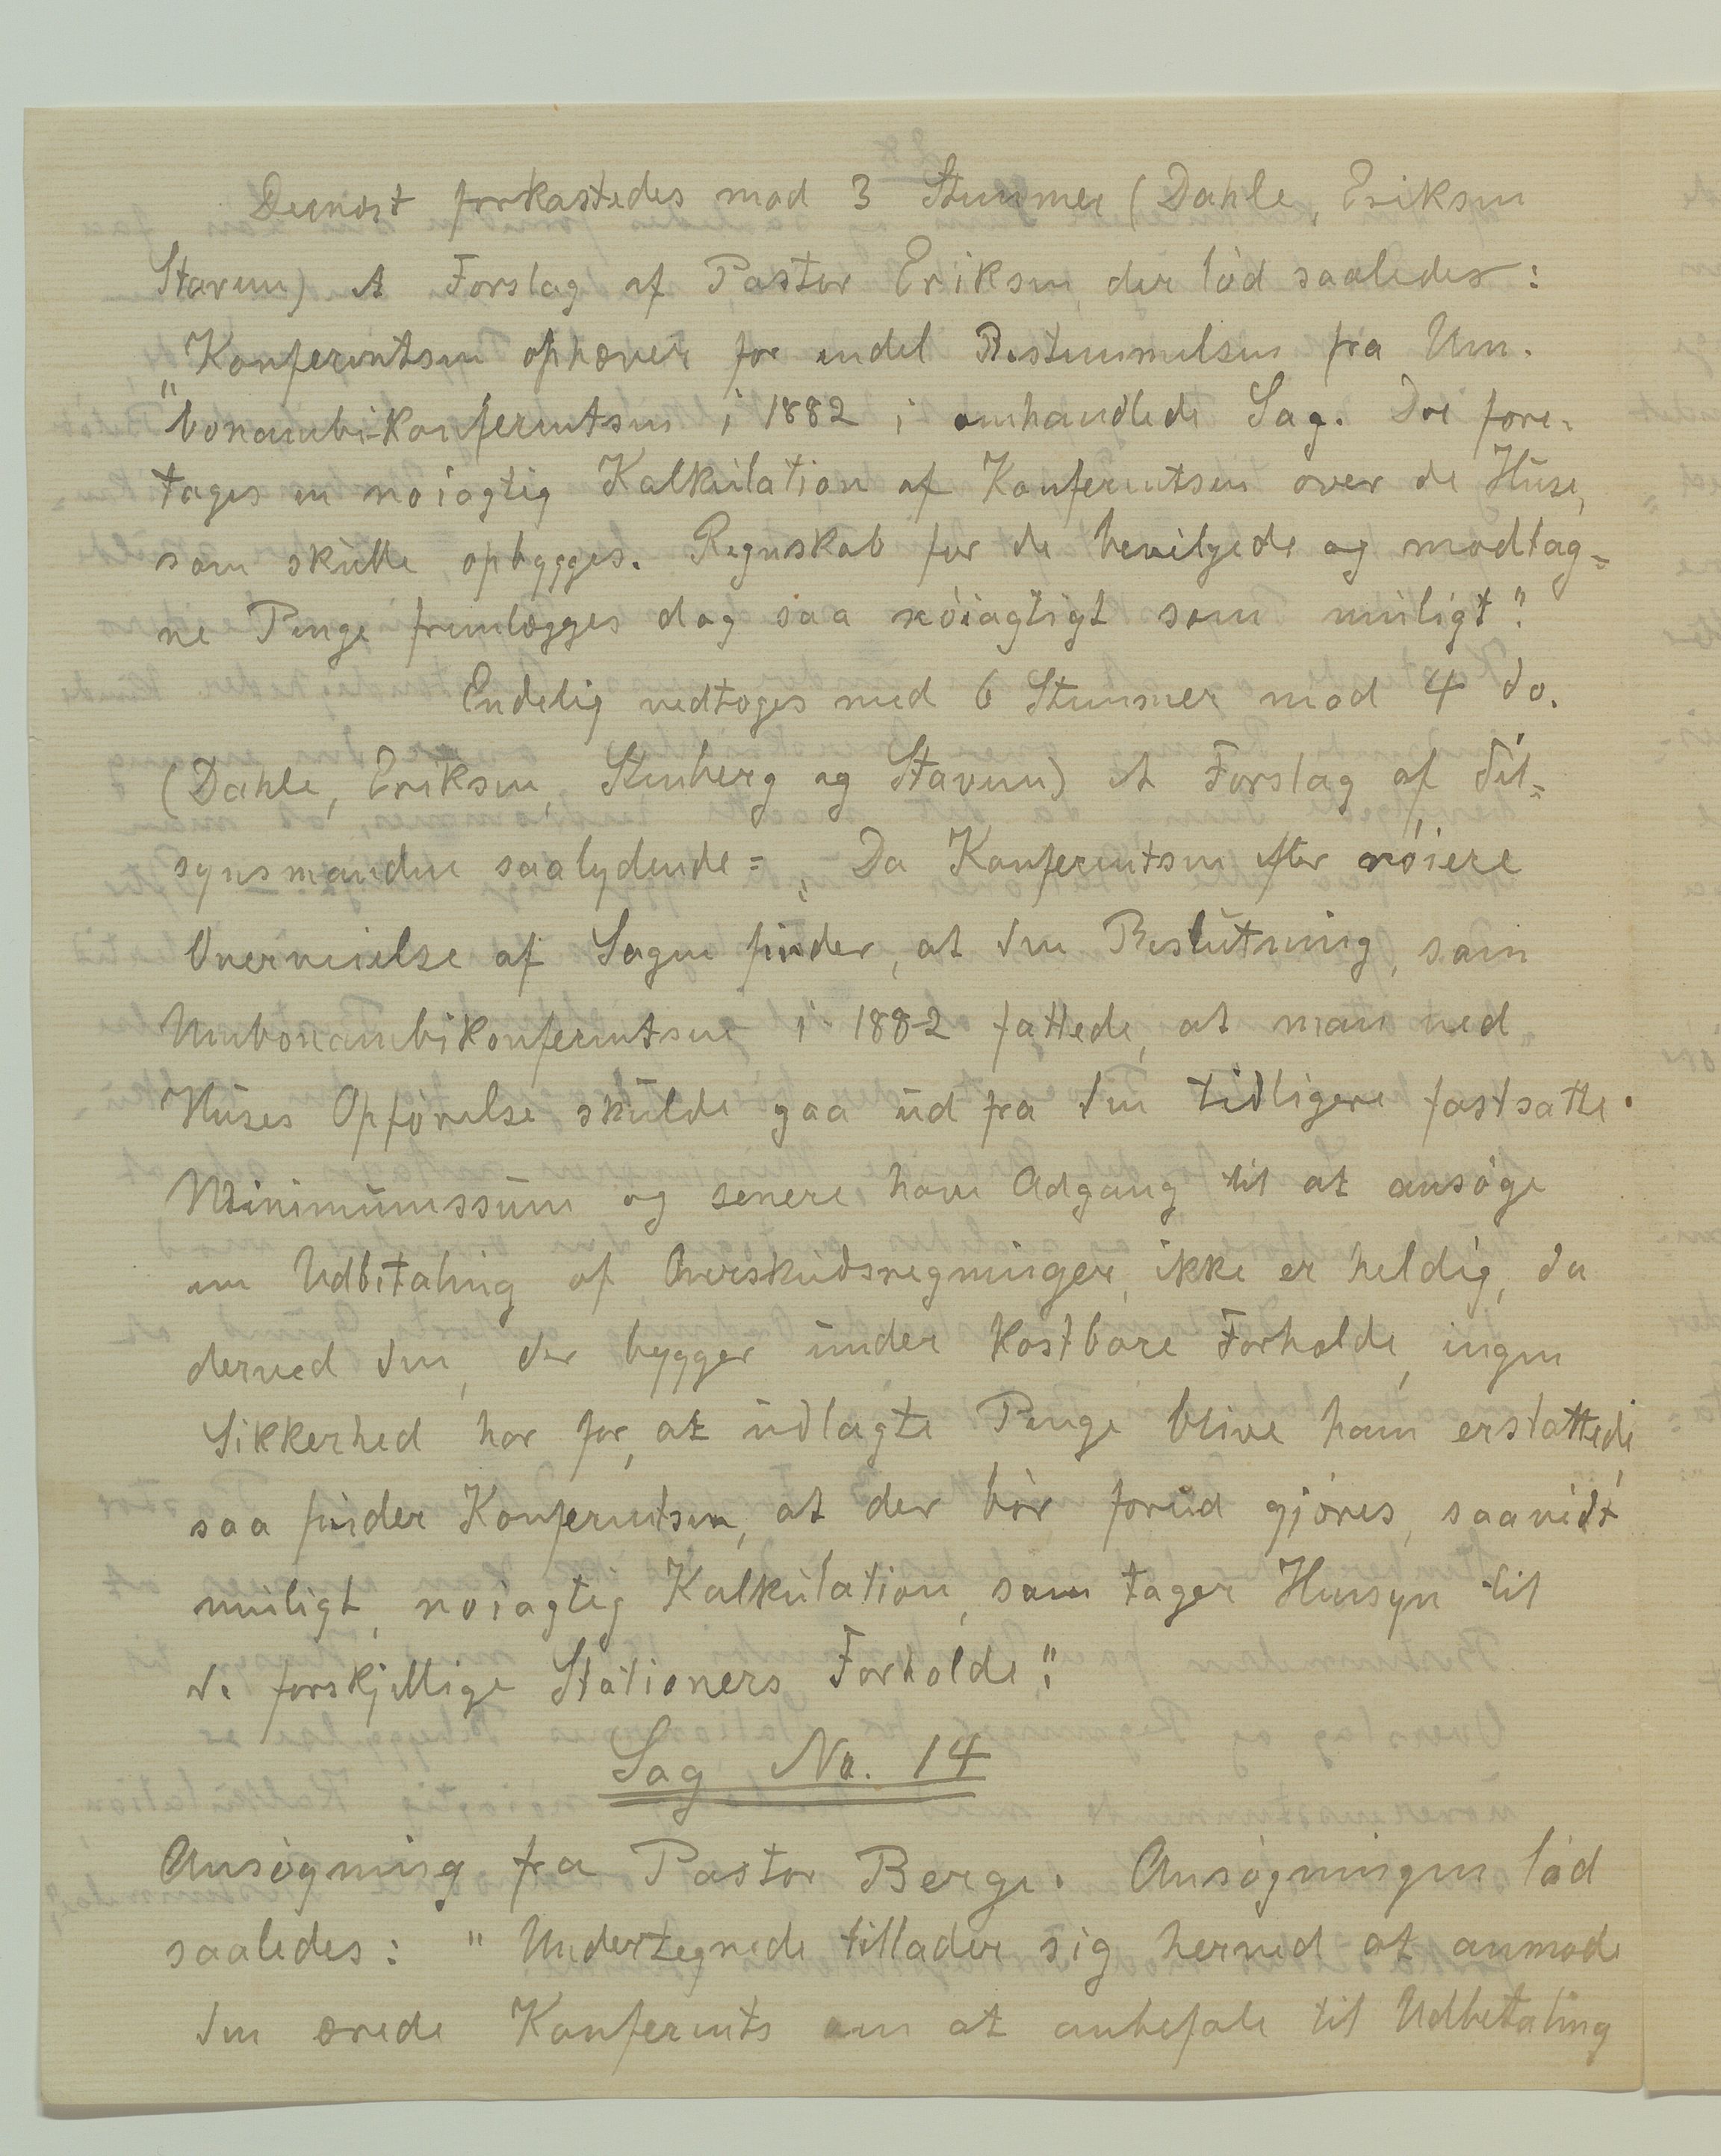 Dernæst forkastedes mod 3 Stemmer (Dahle, Eriksen
Stavem) et Forslag af Pastor Eriksen, der lød saaledes:
"Konferentsen ophæver for endel Bestemmelsen fra Um-
"bonambi-Konferentsen i 1882 i omhandlede Sag. Der fore-
tages en nøiagtig Kalkulation af Konferentsen over de Huse,
som skulle opbygges. Regnskab for de bevilgede og modtag=
ne Penge fremlægges dog saa nøiagtigt som muligt".
Endelig vedtoges med 6 Stemmer mod 4 do.
(Dahle, Eriksen, Stenberg og Stavem) et Forslag af Til=
synsmanden saalydende: "Da Konferentsen efter nøiere
Overveielse af Sagen finder, at den Beslutning, som
Umbonambikonferentsen i 1882 fattede, at man ved
Huses Opførelse skulde gaa ud fra den tidligere fastsatte
Minimumssum og senere have Adgang til at ansøge
om Udbetaling af Overskudsregninger, ikke er heldig, da
derved den, der bygger under kostbare Forholde, ingen
Sikkerhed har for, at udlagte Penge blive ham erstattede,
saa finder Konferentsen, at der bør forud gjøres, saavidt
muligt, nøiagtig Kalkulation, som tager Hensyn til
de forskjellige Stationers Forholde".
Sag No. 14
Ansøgning fra Pastor Berge. Ansøgningen lød
saaledes: " Undertegnede tillader sig herved at anmode
den ærede Konferents om at anbefale til Udbetaling